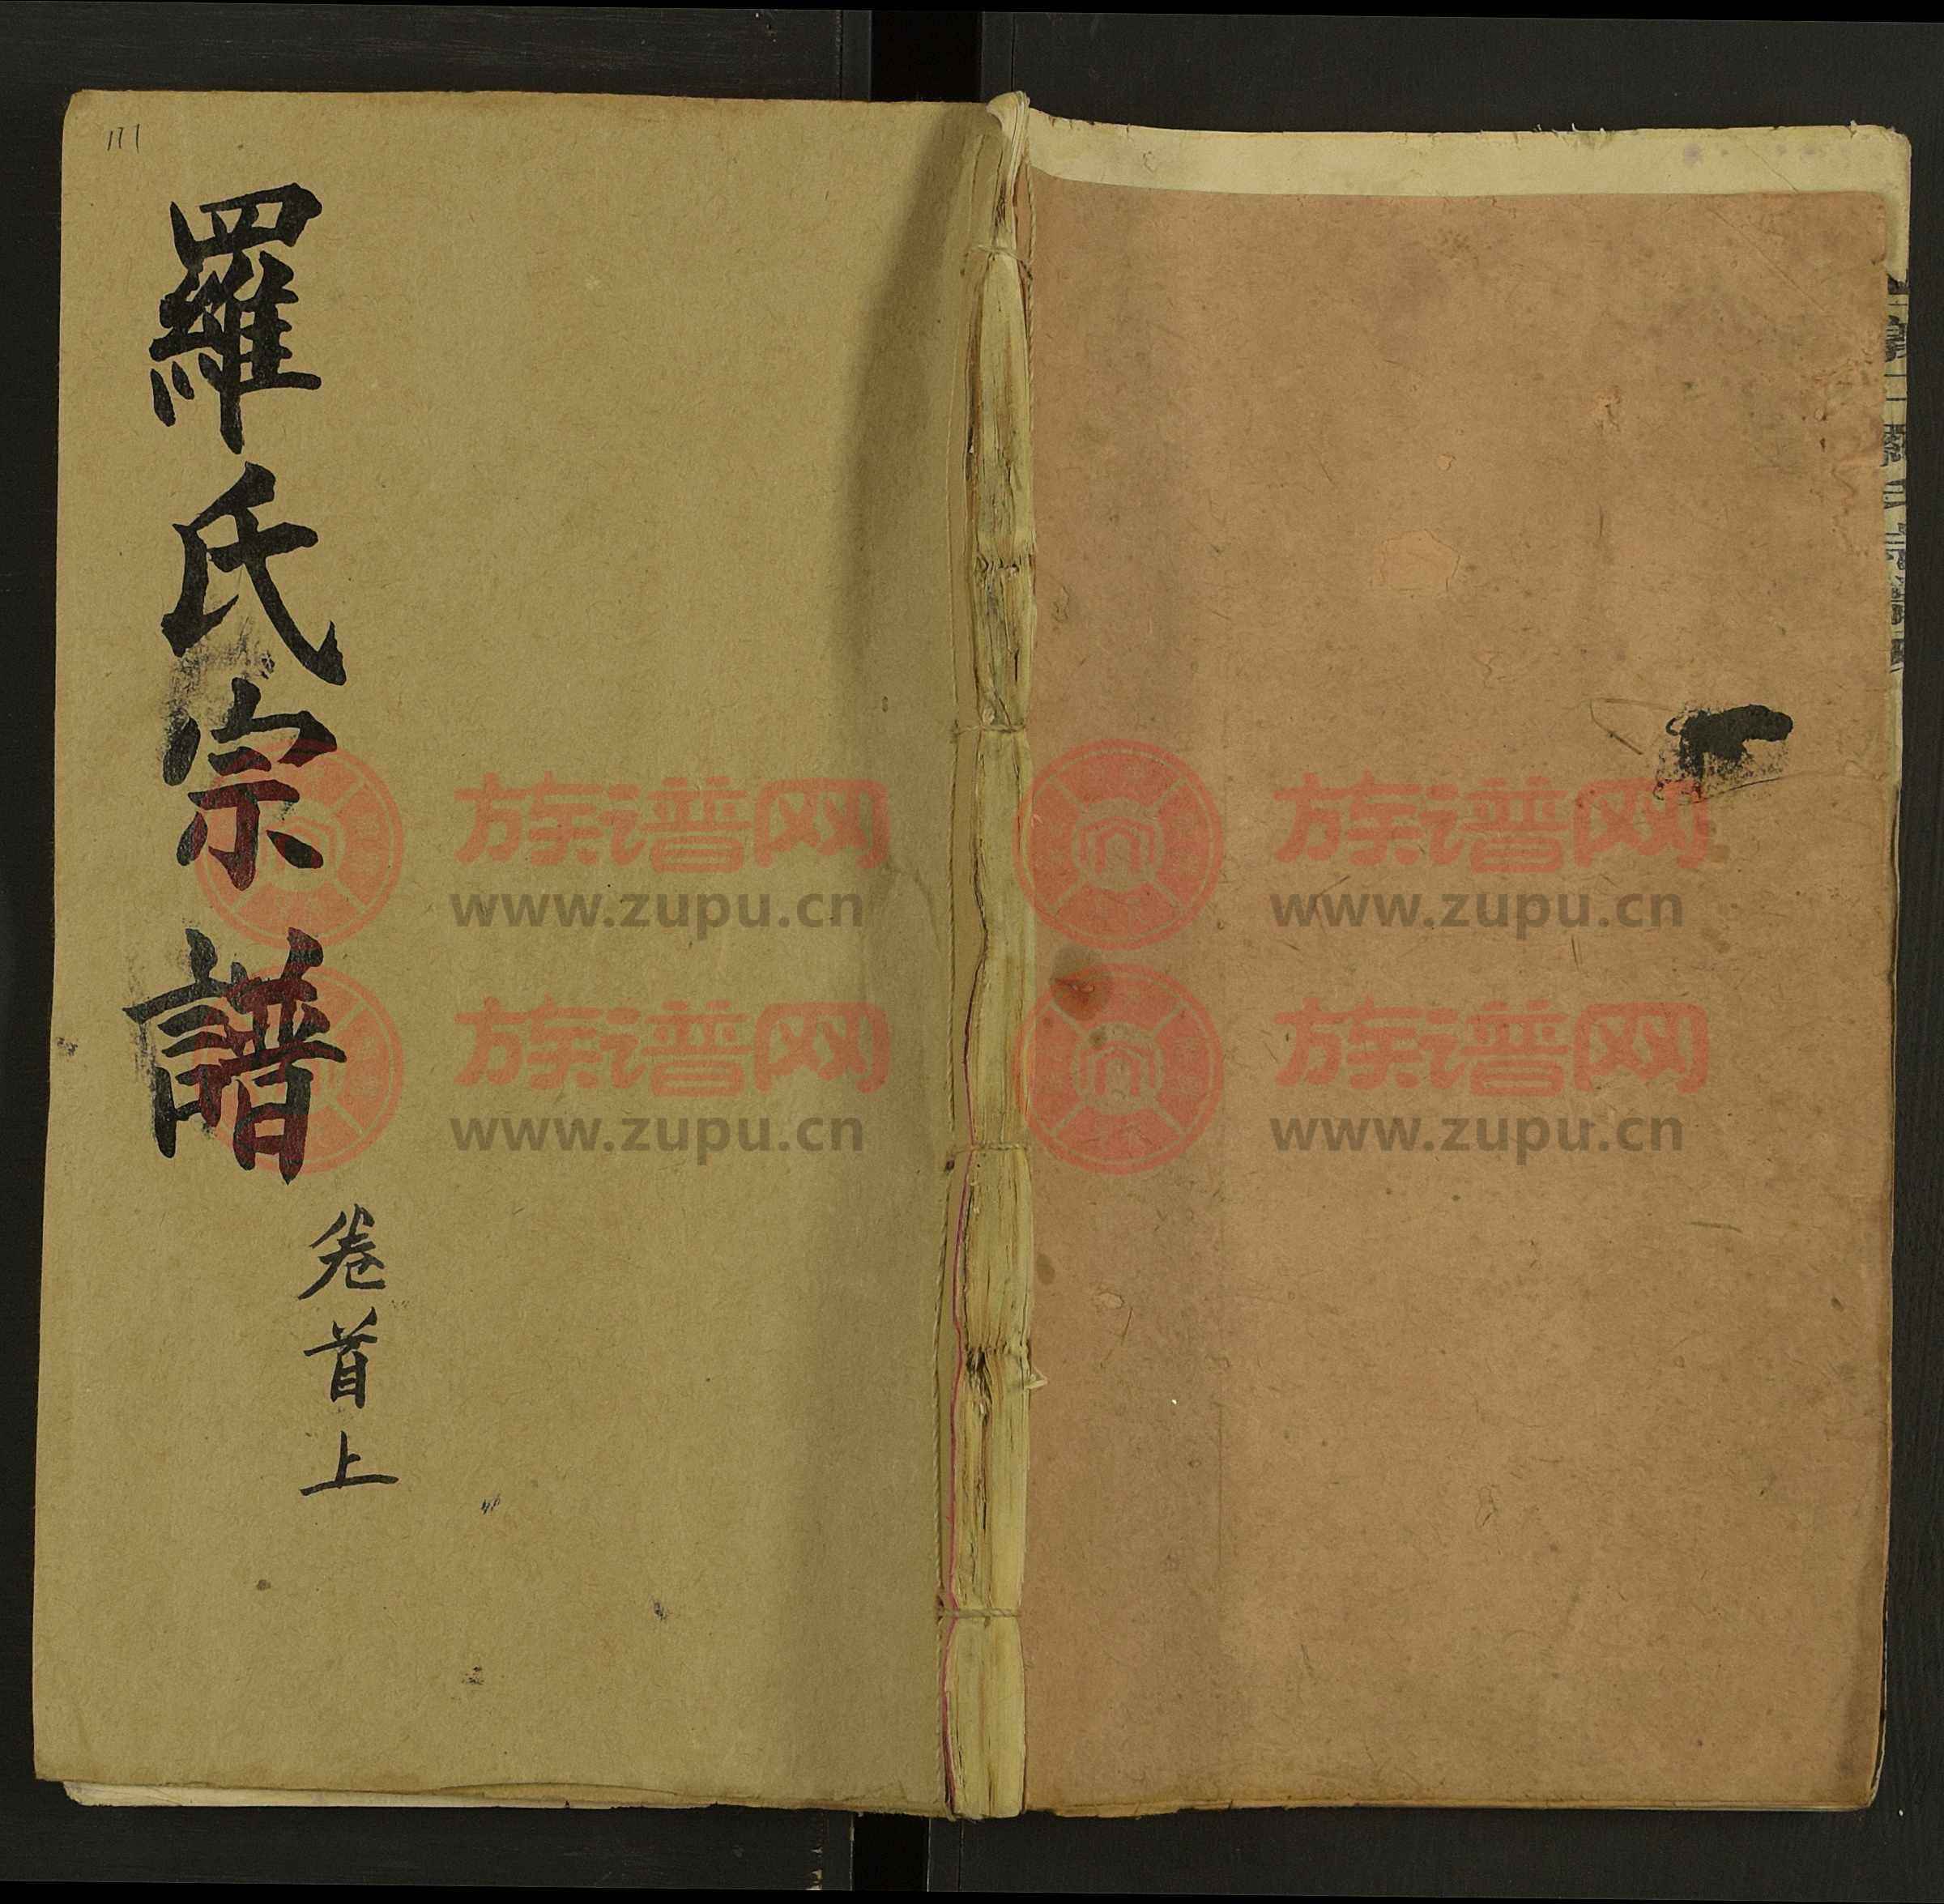 羅氏宗譜
卷首上
族谱网
www.zupu.cn
族谱网
www.zupu.cn
族谱网
www.zupu.cn
族谱网
www.zupu.cn